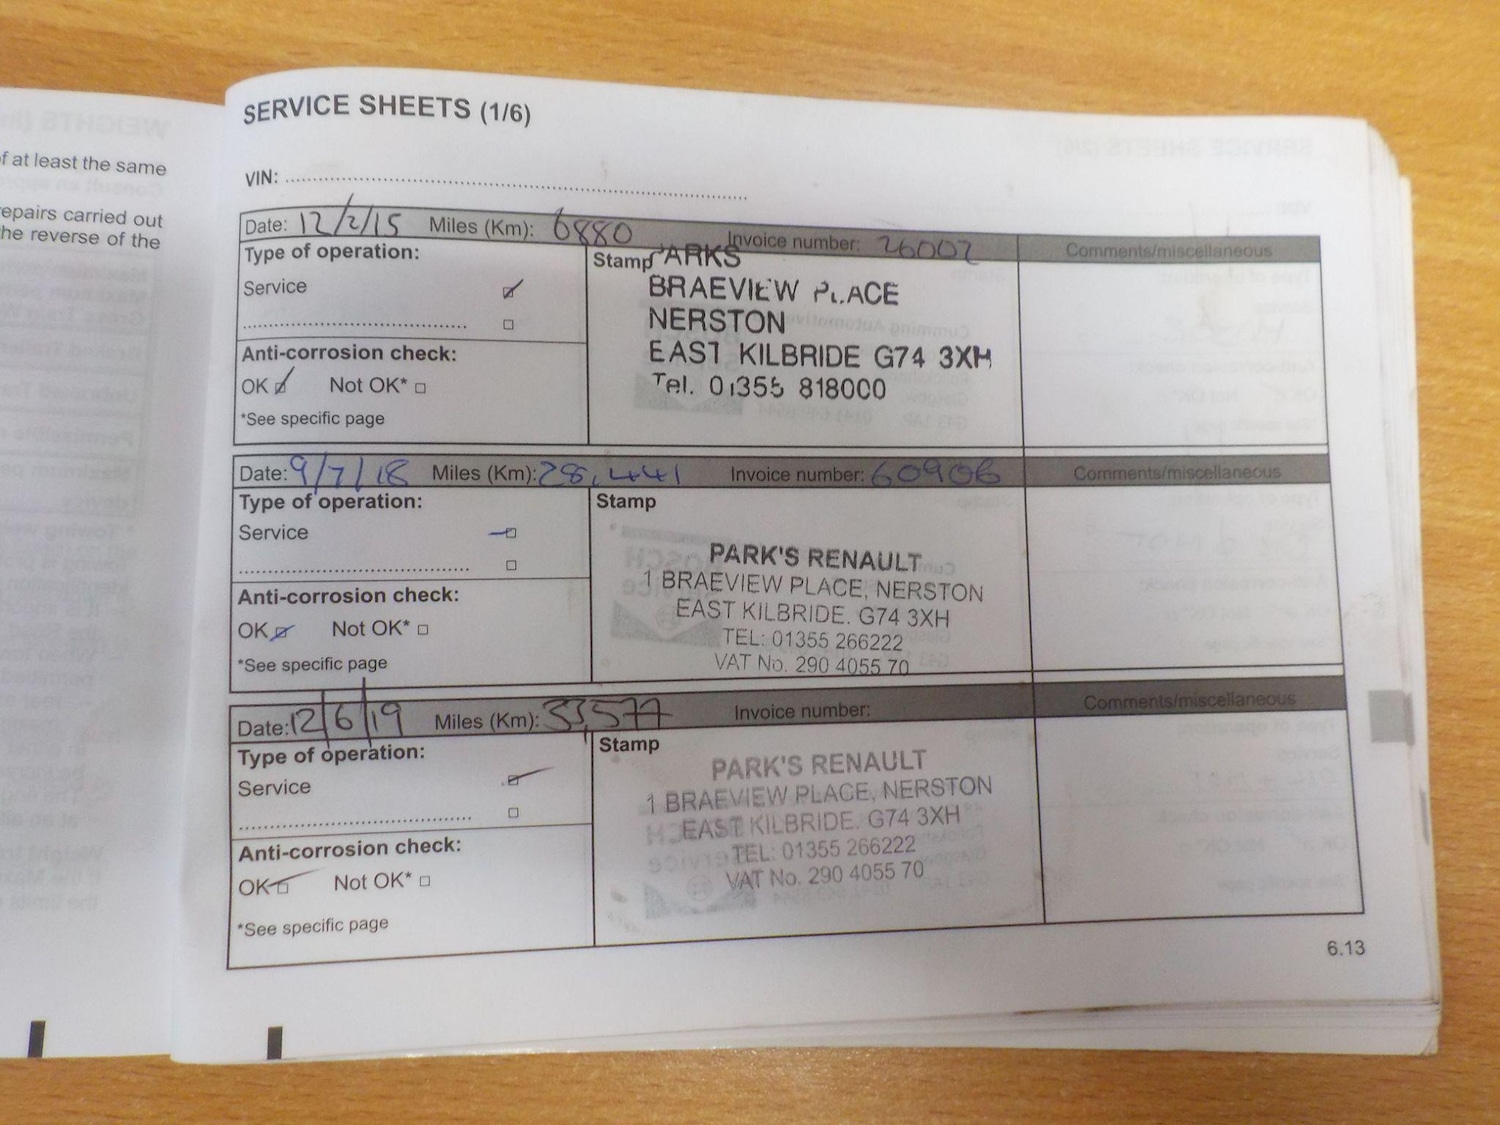 f at least the same
epairs carried out
he reverse of the
SERVICE SHEETS (1/6)
VIN:
Date: 12/2/15 Miles (Km): 6880 Invoice number: 26002 Comments/miscellaneous
Type of operation:
Service
Anti-corrosion check:
OK Not OK*
*See specific page
Stamp
PARKS
BRAEVIEW PLACE
NERSTON
EAST KILBRIDE G74 3XH
Tel. 01355 818000
Date: 9/7/18 Miles (Km): 28,441 Invoice number: 60906 Comments/miscellaneous
Type of operation:
Service
Anti-corrosion check:
OK Not OK*
*See specific page
Stamp
PARK'S RENAULT
1 BRAEVIEW PLACE, NERSTON
EAST KILBRIDE. G74 3XH
TEL: 01355 266222
VAT No. 290 4055 70
Date: 12/6/19 Miles (Km): 33,577 Invoice number: Comments/miscellaneous
Type of operation:
Service
Anti-corrosion check:
OK Not OK*
*See specific page
Stamp
PARK'S RENAULT
1 BRAEVIEW PLACE, NERSTON
EAST KILBRIDE. G74 3XH
TEL: 01355 266222
VAT No. 290 4055 70
6.13